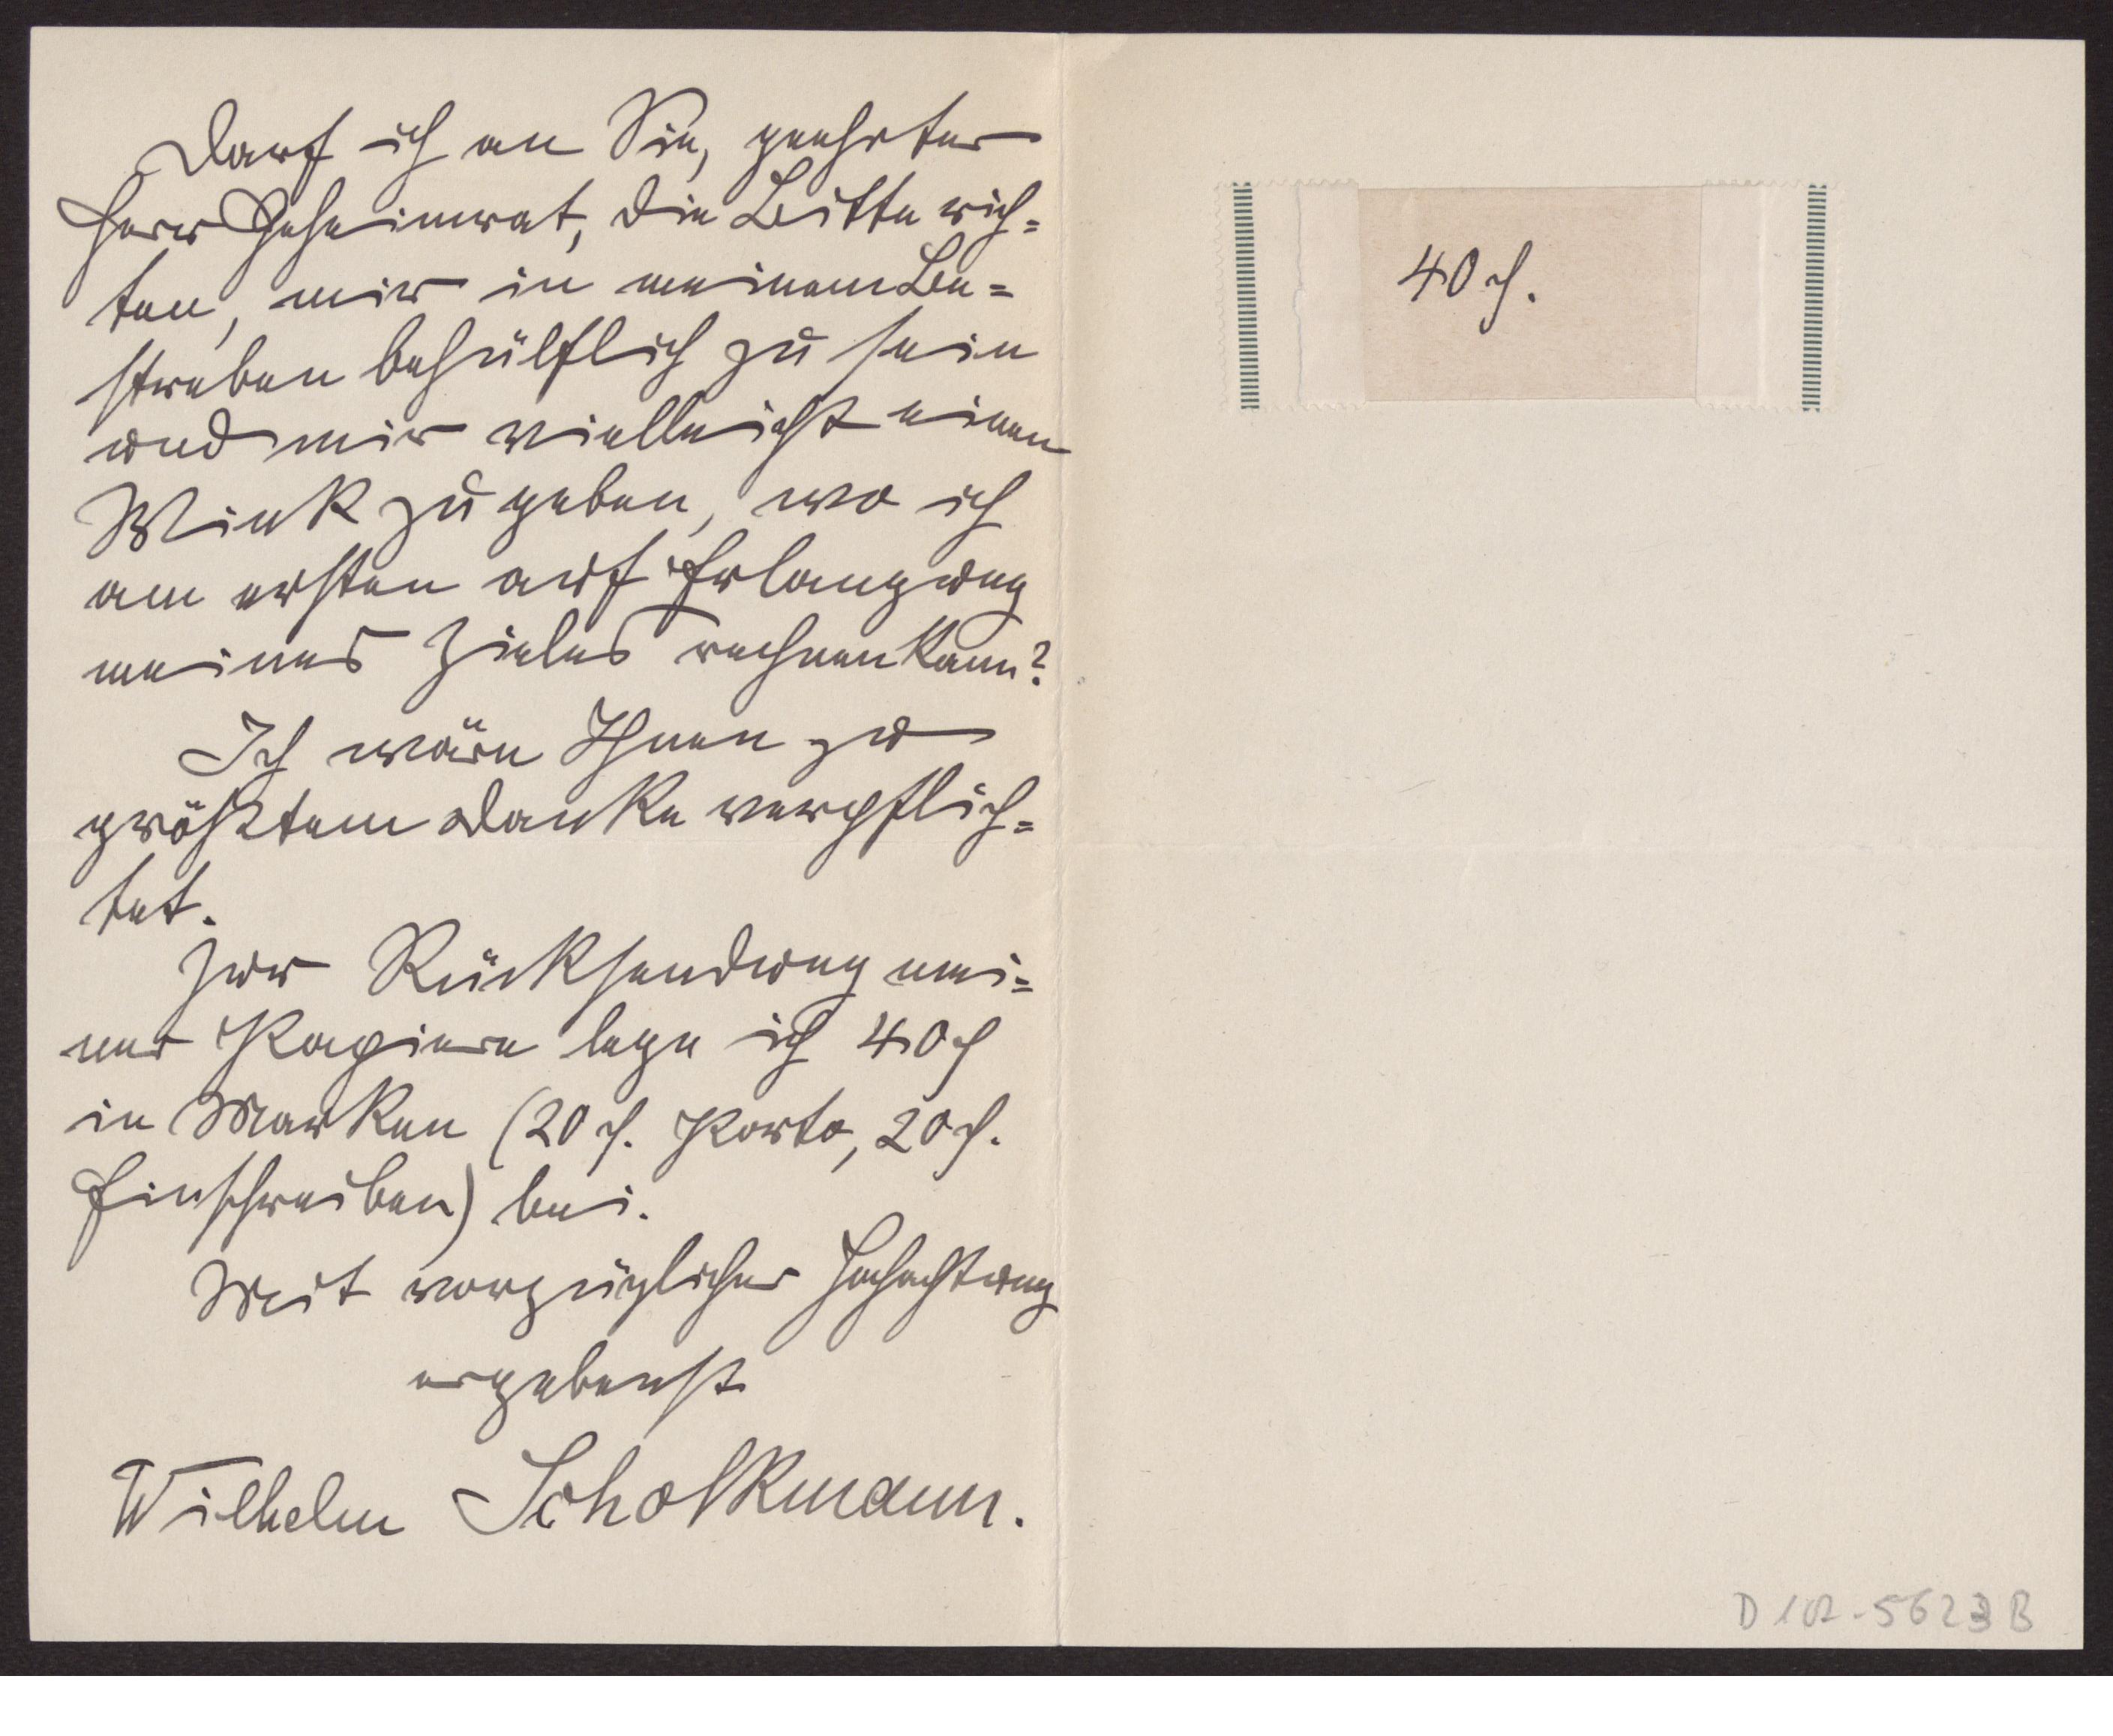 Darf ich an Sie, geehrter
Herr Geheimrat, die Bitte rich=
ten, mir in meinem Be=
streben behülflich zu sein
und mir vielleicht einen
Wink zu geben, wo ich
am ersten auf Erlangung
meines Zieles rechnen kann?
Ich wäre Ihnen zu
größtem Danke verpflich=
tet.
Zur Rücksendung mei=
ner Papiere lege ich 40 ₰
in Marken (20 ₰. Porto, 20 ₰.
Einschreiben) bei.
Mit vorzüglicher Hochachtung
ergebenst
Wilhelm Scholkmann.
40 ₰.
D 102-5623 B